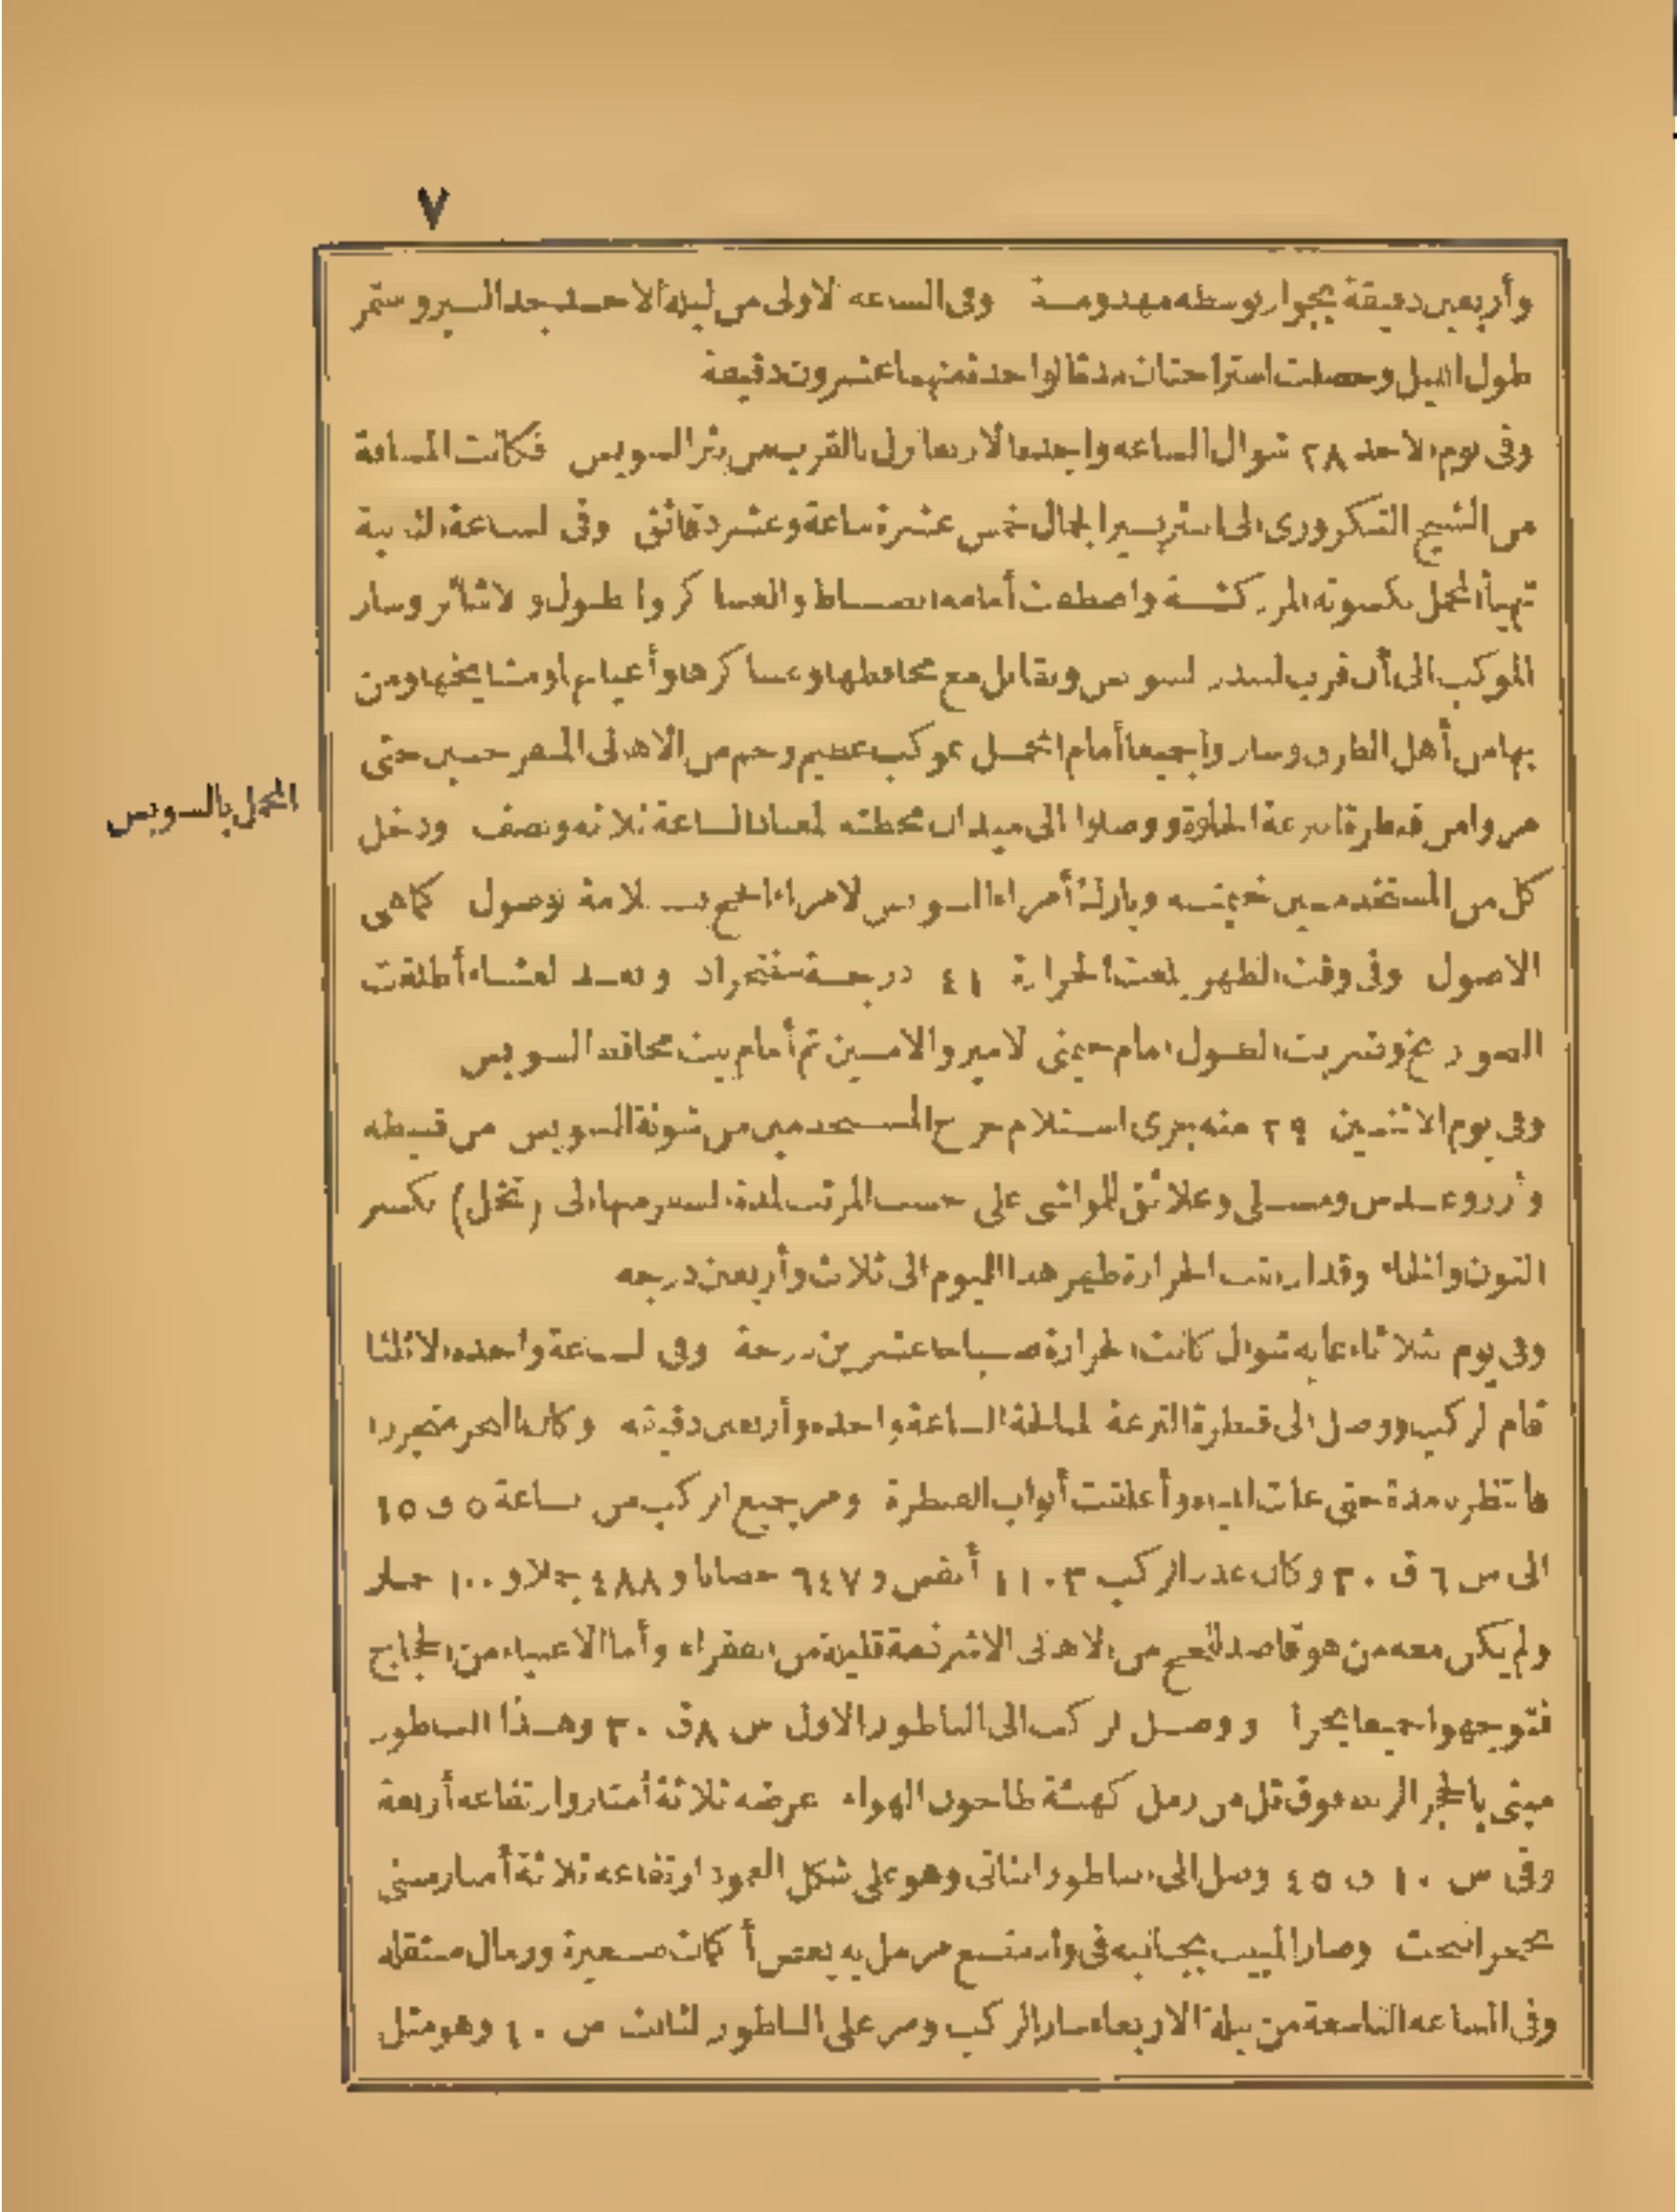 ٧
وأربعين دقيقة بجوار بوسطه مهدومة وفى الساعة الاولى من ليلة الاحد جد السير واستمر
طول الليل وحصلت استراحتان مدة الواحدة منهما عشرون دقيقة
وفى يوم الاحد ٢٨ شوال الساعة واحدة الا ربعا نزل بالقرب من بئر السويس فكانت المسافة
من الشيخ التكرورى الى البئر بسير الجمال خمس عشرة ساعة وعشر دقائق وفى الساعة الثانية
تهيأ المحمل بكسوته المزركشة واصطفت أمامه الضباط والعساكر والطبول والاشائر وسار
الموكب الى أن قرب لبندر السويس وتقابل مع محافظها وعساكرها وأعيانها ومشايخها ومن
بها من أهل الطرق وساروا جميعا أمام المحمل بموكب عظيم وجم من الاهالى المتفرجين حتى
مروا من قنطرة الترعة الحلوة ووصلوا الى ميدان محطته المعتادة الساعة ثلاثة ونصف ودخل
المحمل بالسويس
كل من المستخدمين خيمته وبارك أمراء السويس لامراء الحج بسلامة الوصول كما هى
الاصول وفى وقت الظهر بلغت الحرارة ٤١ درجة سنتجراد وبعد العشاء أطلقت
الصواريخ وضربت الطبول أمام خيمتى الامير والامين ثم أمام بيت محافظ السويس
وفى يوم الاثنين ٢٩ منه جرى استلام مرتب المستخدمين من شونة السويس من بقسماط
وأرز وعدس ومسلى وعلائق للمواشى على حسب المرتب لمدة السير منها الى (نخل) بكسر
النون والخاء وقد ارتقت الحرارة ظهر هذا اليوم الى ثلاث وأربعين درجة
وفى يوم الثلاثاء غاية شوال كانت الحرارة صباحا عشرين درجة وفى الساعة واحدة الا ثلثا
قام الركب ووصل الى قنطرة الترعة المالحة الساعة واحدة وأربعين دقيقة وكان البحر منجزرا
فانتظر مدة حتى علت المياه وأغلقت أبواب القنطرة ومر جميع الركب من ساعة ٥ ق ١٥
الى س ٦ ق ٣٠ وكان عدد الركب ١١٠٣ أنفس و ٦٤٧ حصانا و ٤٨٨ جملا و ١٠٠ حمار
ولم يكن معه من هو قاصد للحج من الاهالى الا شرذمة قليلة من الفقراء وأما الاغنياء من الحجاج
فتوجهوا جميعا بحرا ووصل الركب الى الناطور الاول س ٨ ق ٣٠ وهذا الناطور
مبنى بالحجر الربده فوق تل من رمل كهيئة طاحون الهواء عرضه ثلاثة أمتار وارتفاعه أربعة
وفى س ١٠ ق ٤٥ وصل الى الناطور الثانى وهو على شكل العمود ارتفاعه ثلاثة أمتار مبنى
بحجر النحت وصار المبيت بجانبه فى واد متسع مرمل به بعض أكمات صغيرة ورمال متنقلة
وفى الساعة التاسعة من ليلة الاربعاء سار الركب ومر على الناطور الثالث س ١٠ وهو مثل